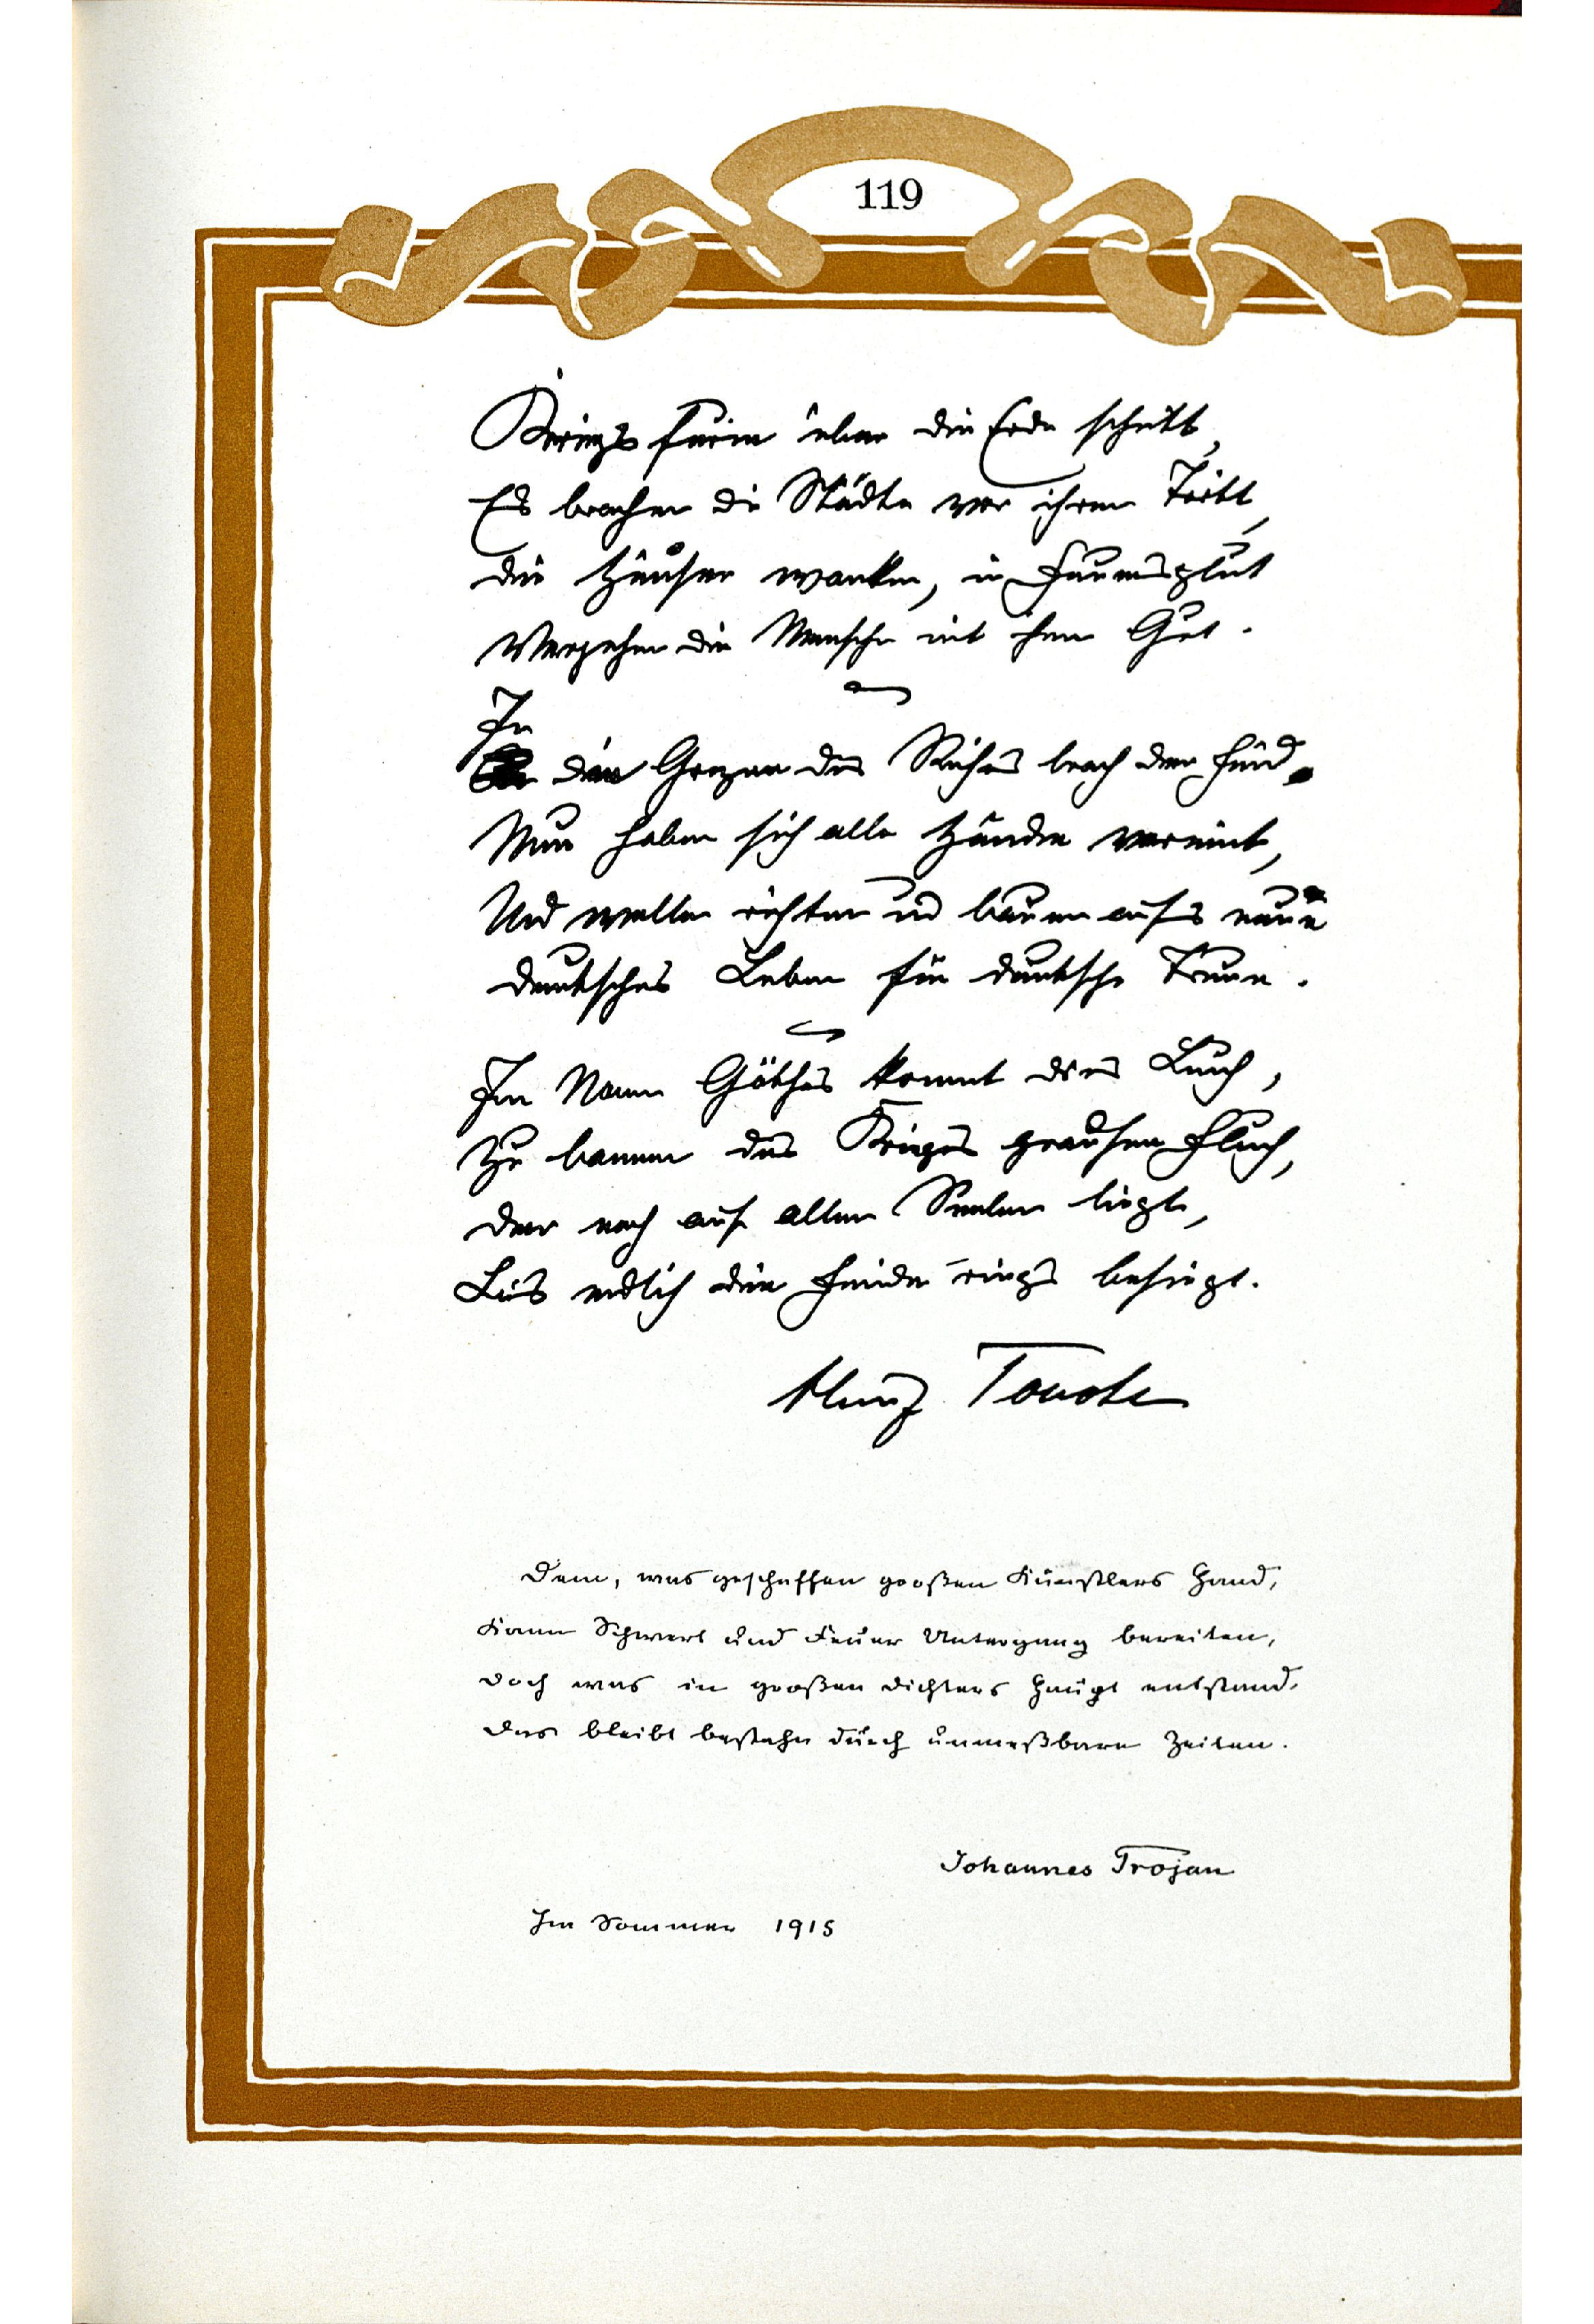 119
Kriegsfurie über die Erde schritt,
Es brachen die Städte vor ihrem Tritt,
die Häuser wanken, in Feuersglut
Vergehen die Menschen mit ihrem Gut.
In
die Grenzen des Reiches brach der Feind.
Nun haben sich alle Hände vereint,
Und wollen richten und bauen aufs neue
deutsches Leben für deutsche Treue.
Im Namen Göthes kommt dies Buch,
Zu bannen des Krieges grausen Fluch,
der noch auf allen Seelen liegt,
Bis endlich die Feinde rings besiegt.
Heinz Tovote
Dem, was geschaffen großen Künstlers Hand,
Kann Schwert und Feuer Untergang bereiten,
Doch was in großen Dichters Haupt entstand,
Das bleibt bestehn durch unmeßbare Zeiten.
Johannes Trojan
Im Sommer 1915